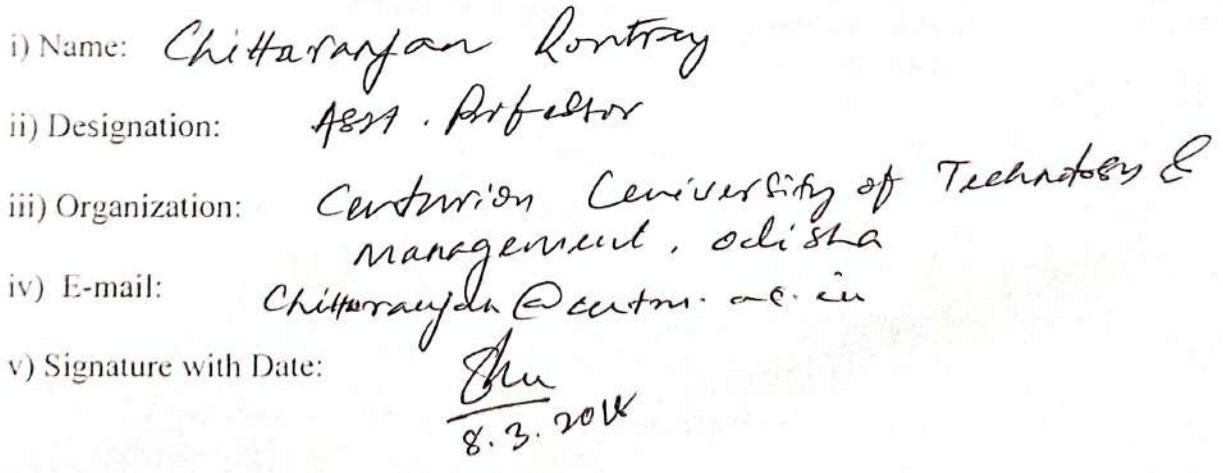 i) Name: Chittaranjan Routray
ii) Designation: Asst. Professor
iii) Organization: Centurion University of Technology &
Management, Odisha
iv) E-mail: Chittaranjan@cutm.ac.in
v) Signature with Date:
8.3.2018